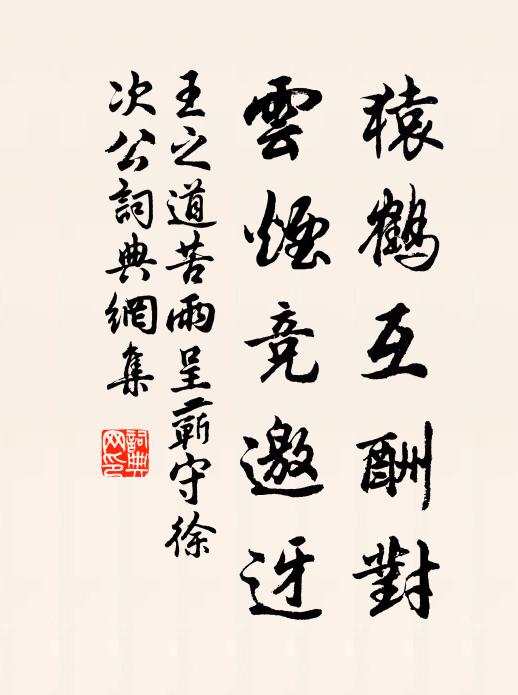 猿鶴互酬對
雲煙競邀迓
王之道苦雨呈蘄守徐
次公詞典網集
詞典網印